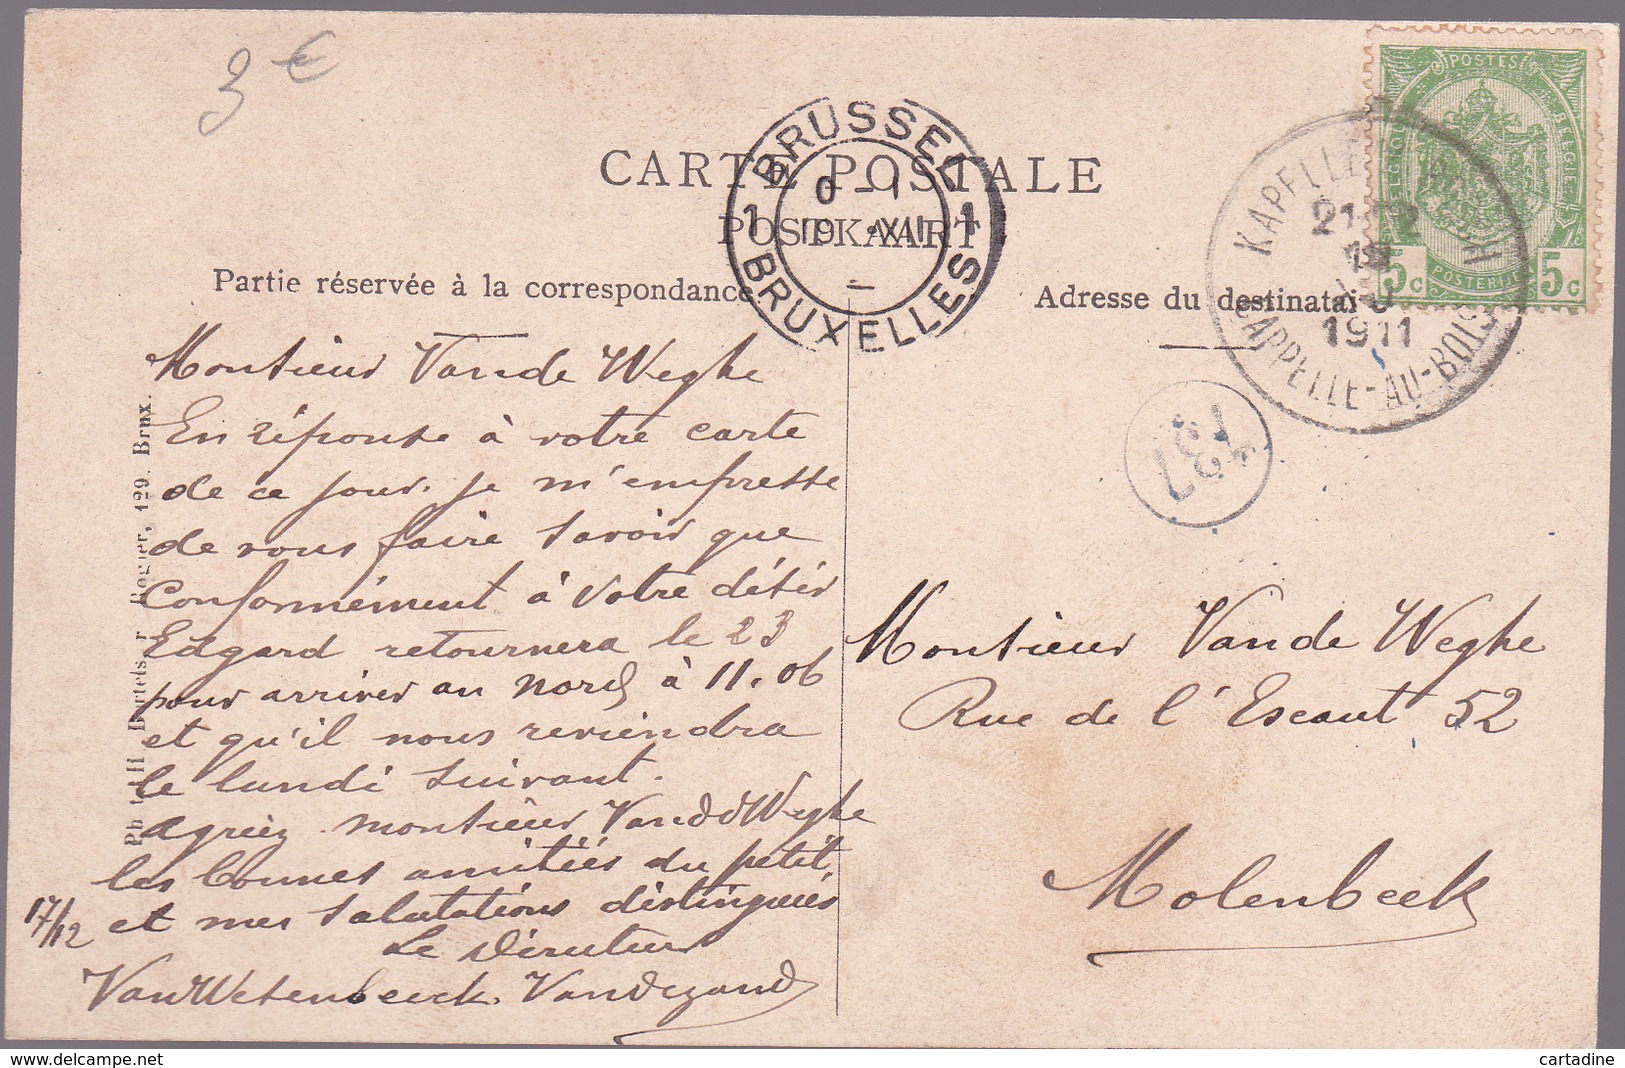 3 €
CARTE POSTALE
POSTKAART
Partie réservée à la correspondance
Adresse du destinatai
BRUSSEL
1 1
BRUXELLES
POSTES BELGIQUE
POSTERIJEN
5c 5c
KAPELLE
1911
CAPPELLE-AU-BOIS
137
Monsieur Van de Weghe
En réponse à votre carte
de ce jour, je m'empresse
de vous faire savoir que
Conformément à votre désir
Edgard retournera le 23
pour arriver au nord à 11.06
et qu'il nous reviendra
le lundi suivant.
agréez monsieur Van de Weghe
les bonnes amitiés du petit,
17/12 et mes salutations distinguées
Le Directeur
Monsieur Van de Weghe
Rue de l'Escaut 52
Molenbeek
129. Brux.
cartadine